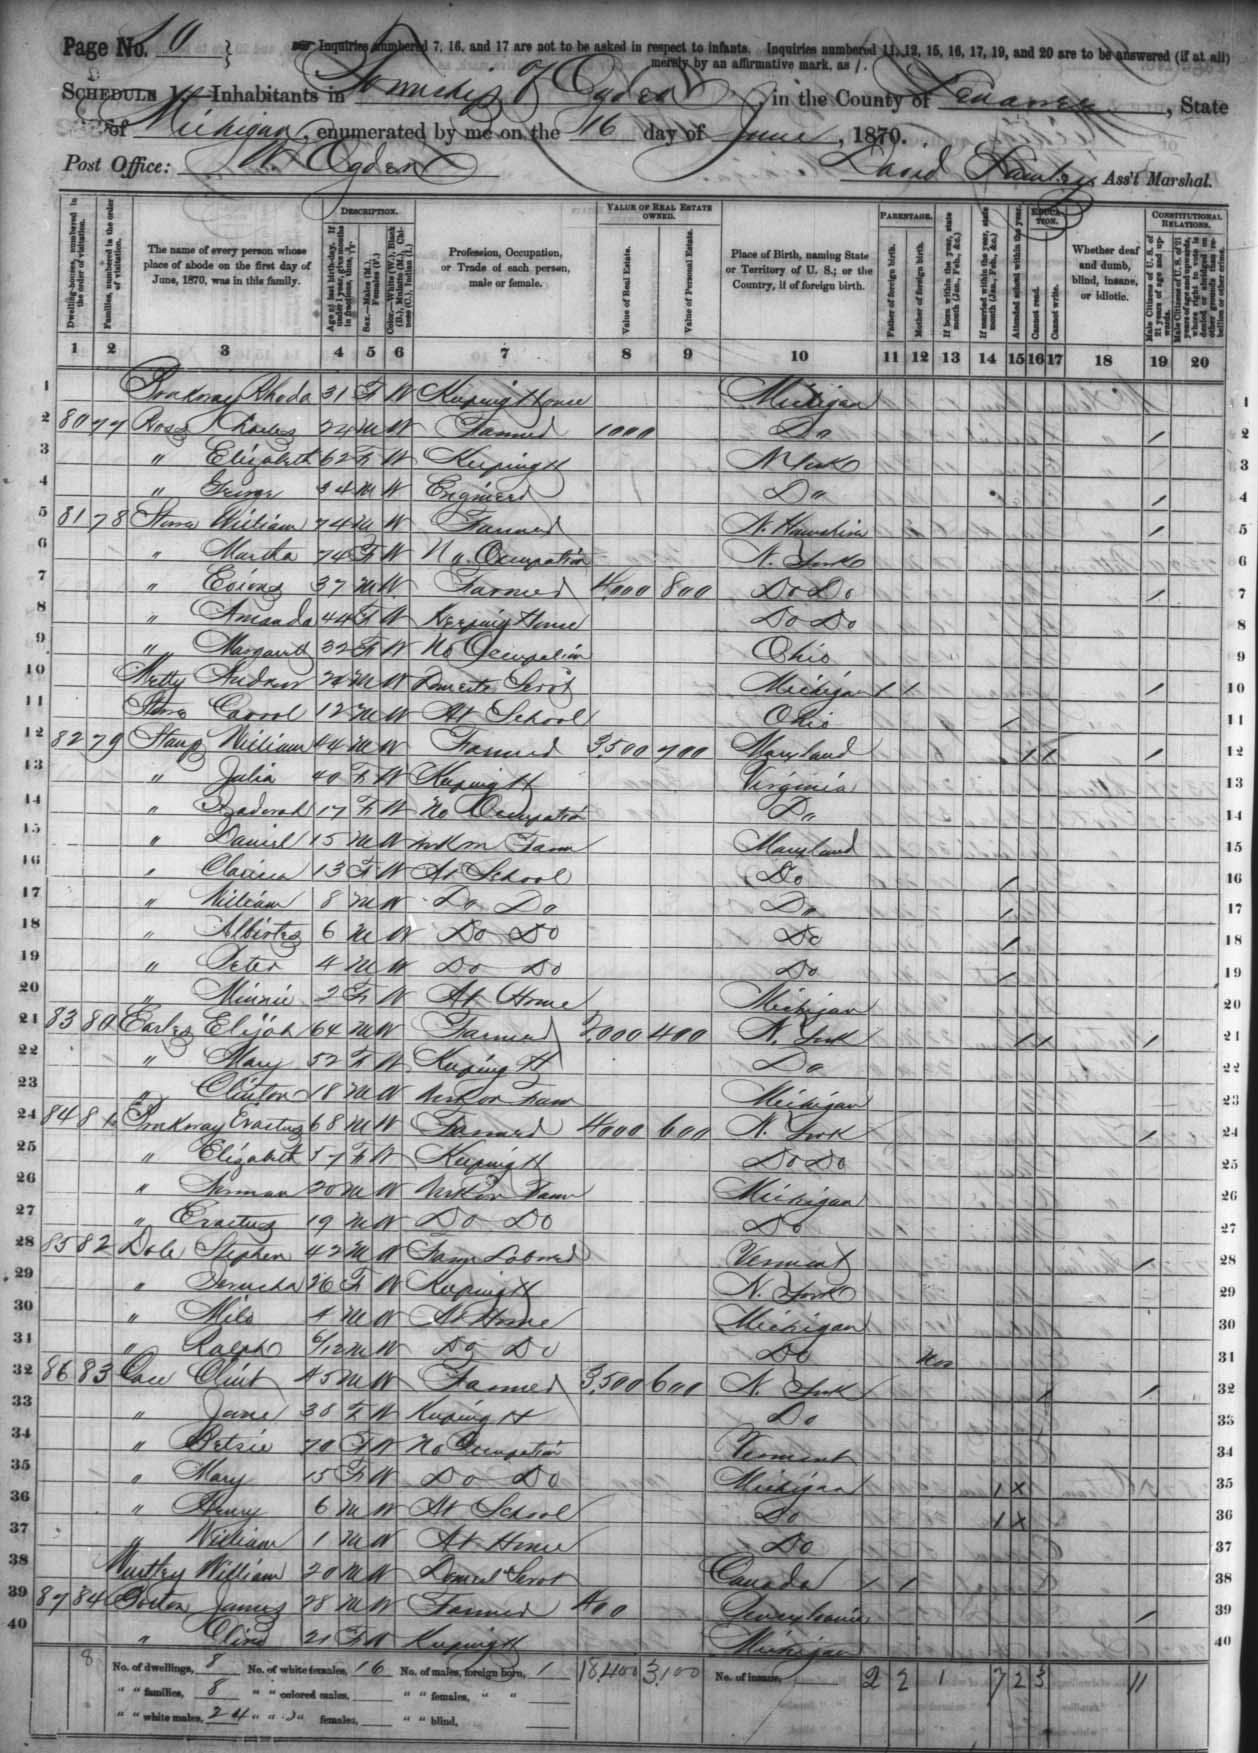 Page No. 10
Inquiries numbered 7, 16, and 17 are not to be asked in respect to infants. Inquiries numbered 11, 12, 15, 16, 17, 19, and 20 are to be answered (if at all)
merely by an affirmative mark, as /.
SCHEDULE 1.—Inhabitants in Township of Ogden, in the County of Lenawee, State
of Michigan, enumerated by me on the 16 day of June, 1870.
Post Office: W. Ogden
David Ass't Marshal.
Dwelling-houses, numbered in the order of visitation.
Families, numbered in the order of visitation.
The name of every person whose place of abode on the first day of June, 1870, was in this family.
DESCRIPTION.
Age at last birth-day. If under 1 year, give months in fractions, thus, 3/12
Sex.—Males (M.), Females (F.)
Color.—White (W.), Black (B.), Mulatto (M.), Chinese (C.), Indian (I.)
Profession, Occupation, or Trade of each person, male or female.
VALUE OF REAL ESTATE OWNED.
Value of Real Estate.
Value of Personal Estate.
Place of Birth, naming State or Territory of U. S.; or the Country, if of foreign birth.
PARENTAGE.
Father of foreign birth.
Mother of foreign birth.
If born within the year, state month (Jan., Feb., &c.)
If married within the year, state month (Jan., Feb., &c.)
EDUCATION.
Attended school within the year.
Cannot read.
Cannot write.
Whether deaf and dumb, blind, insane, or idiotic.
CONSTITUTIONAL RELATIONS.
Male Citizens of U. S. of 21 years of age and upwards.
Male Citizens of U. S. of 21 years of age and upwards, whose right to vote is denied or abridged on other grounds than rebellion or other crime.
1 2 3 4 5 6 7 8 9 10 11 12 13 14 15 16 17 18 19 20
1 Rhoda 31 F W Keeping House Michigan 1
2 80 77 Ross Charles 74 M W Farmer 1000 Do / 2
3 " Elizabeth 62 F W Keeping H N York 3
4 " George 34 M W Engineer Do / 4
5 81 78 William 74 M W Farmer N. Hampshire / 5
6 " Martha 74 F W No Occupation N. York 6
7 " 37 M W Farmer 4,000 800 Do Do / 7
8 " Amanda 44 F W Keeping House Do Do 8
9 " Margarett 32 F W No Occupation Ohio 9
10 Andrew 20 M W Domestic Servt Michigan / / / 10
11 Carrol 12 M W At School Ohio / 11
12 82 79 William 44 M W Farmer 3,500 700 Maryland / / / 12
13 " Julia 40 F W Keeping H Virginia 13
14 " 17 F W No Occupation Do 14
15 " Daniel 15 M W Work on Farm Maryland 15
16 " Clarissa 13 F W At School Do / 16
17 " William 8 M W Do Do Do / 17
18 " Albertes 6 M W Do Do Do / 18
19 " Peter 4 M W Do Do Do / 19
20 " Minnie 2 F W At Home Michigan 20
21 83 80 Earles Elijah 64 M W Farmer 2,000 400 N. York / / / 21
22 " Mary 52 F W Keeping H Do 22
23 " Clinton 18 M W Work on Farm Michigan 23
24 84 81 Erastus 68 M W Farmer 4000 600 N. York / 24
25 " Elizabeth 57 F W Keeping H Do Do 25
26 " Norman 20 M W Work on Farm Michigan 26
27 " Erastus 19 M W Do Do Do 27
28 85 82 Dole Stephen 42 M W Farm Laborer Vermont / 28
29 " Jerusha 26 F W Keeping H N. York 29
30 " Milo 4 M W At Home Michigan 30
31 " Ralph 6/12 M W Do Do Do Nov 31
32 86 83 Case Clint 45 M W Farmer 3,500 600 N. York / / 32
33 " Jane 38 F W Keeping H Do 33
34 " Betsie 70 F W No Occupation Vermont 34
35 " Mary 15 F W Do Do Michigan / x 35
36 " Henry 6 M W At School Do / x 36
37 " William 1 M W At Home Do 37
38 William 20 M W Domest Servt Canada / / / 38
39 87 84 James 28 M W Farmer 400 Pennsylvania / 39
40 " 21 F W Keeping H Michigan 40
8 No. of dwellings, 8 No. of white females, 16 No. of males, foreign born, 1 18,400 3,100 No. of insane, 2 2 1 7 2 3 11
" " families, 8 " " colored males, " " females, " "
" " white males, 24 " " " females, " " blind,